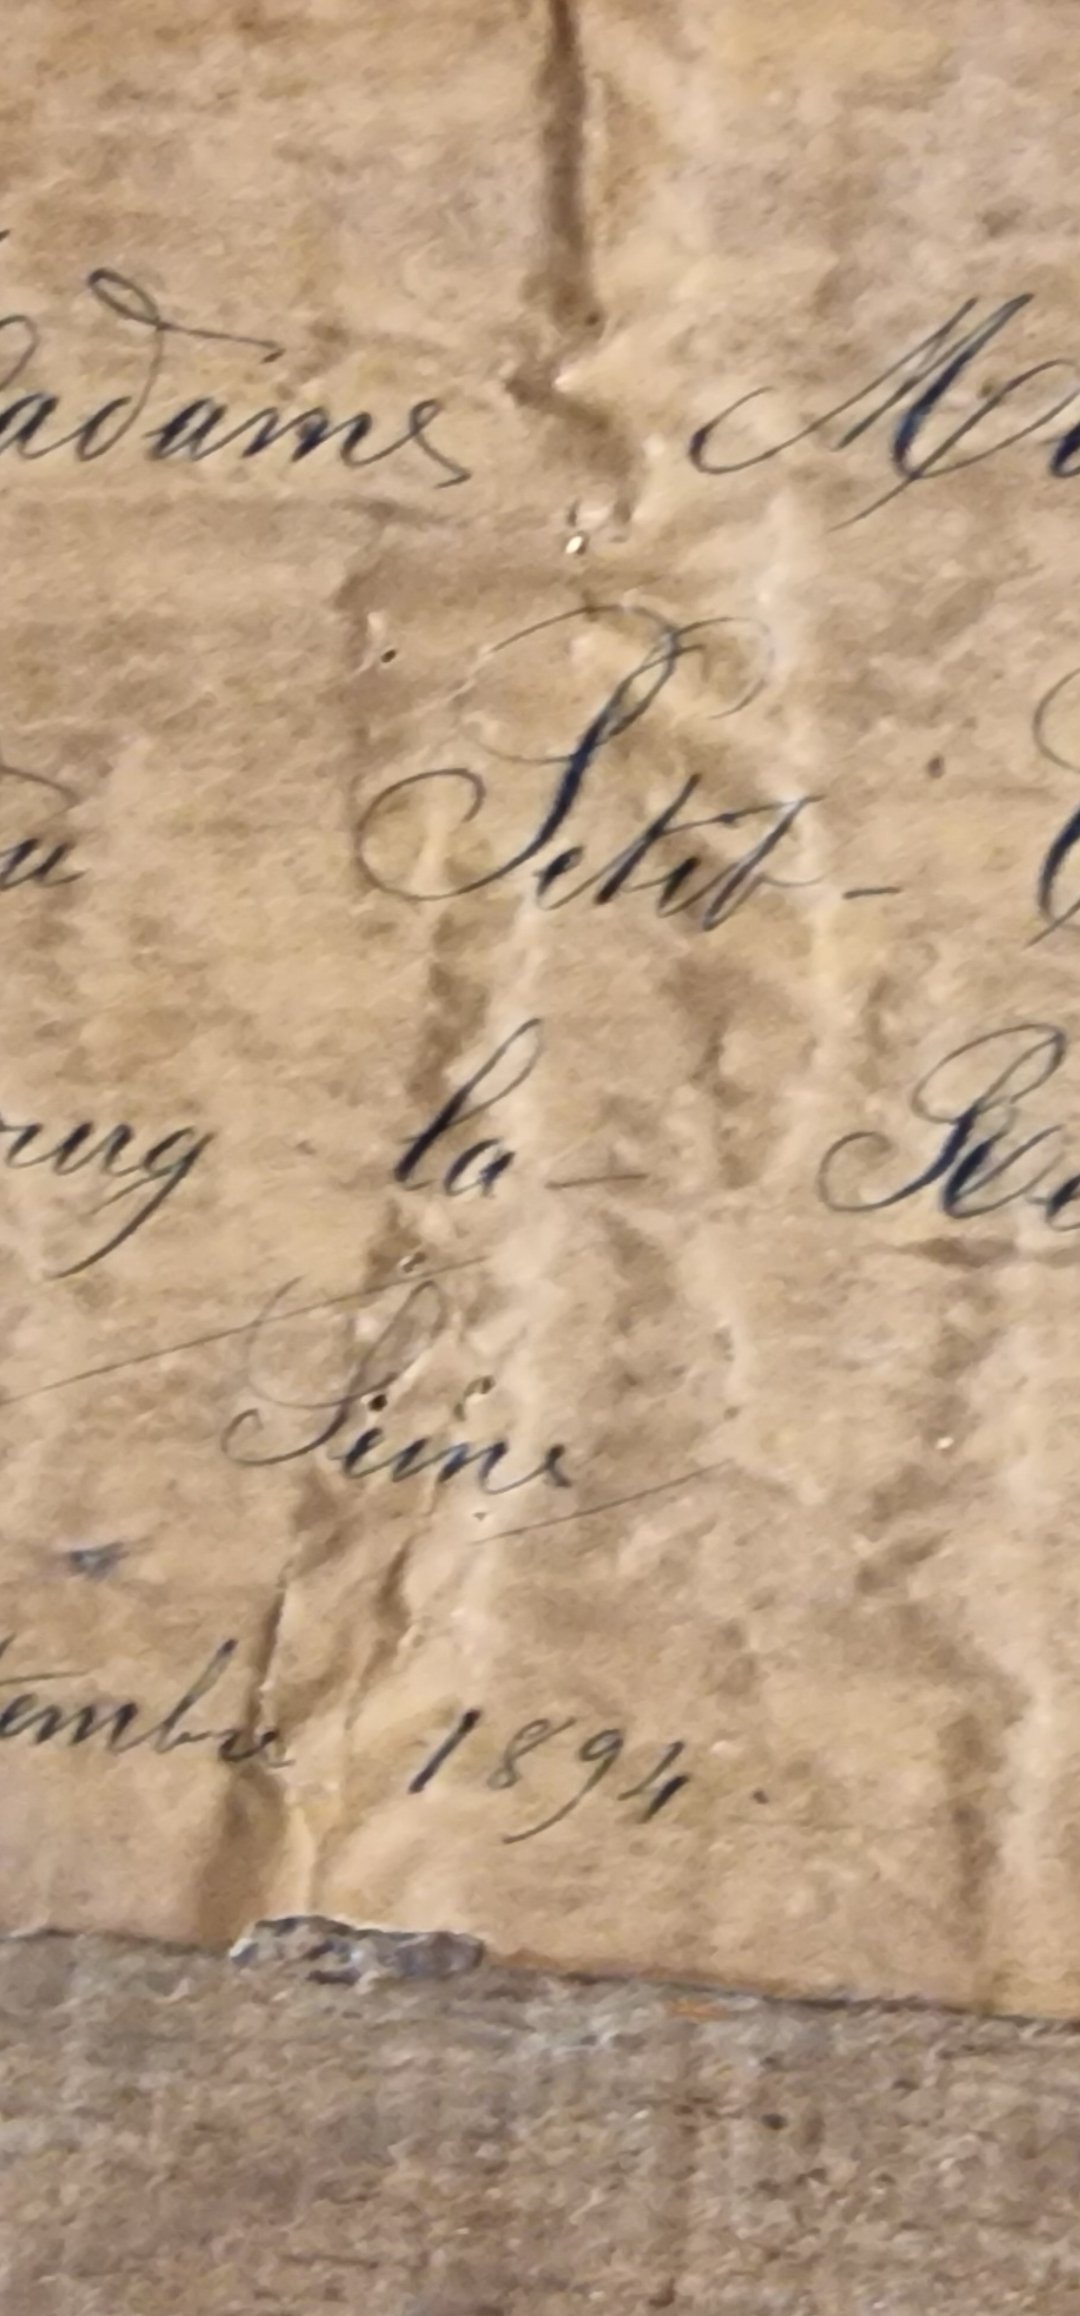 adame M
du Petit-
ourg la-Re
Seine
tembre 1894.